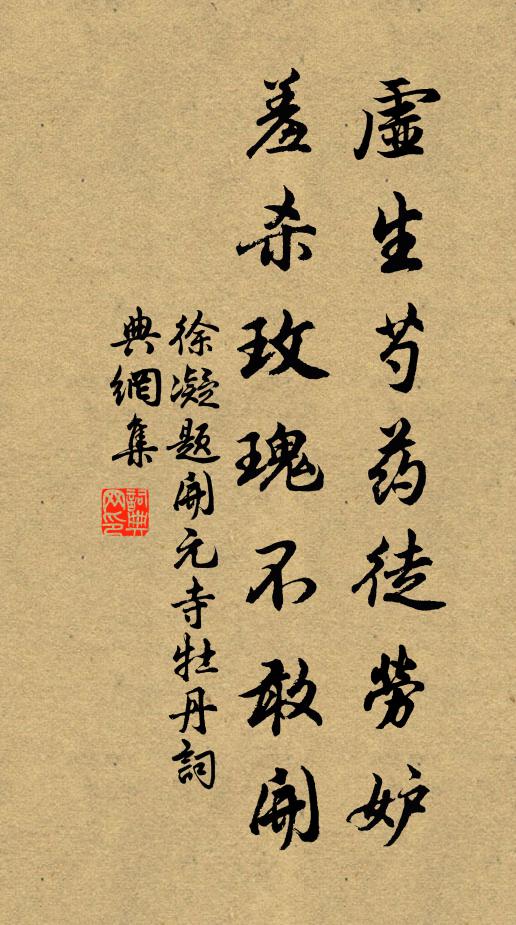 虛生芍药徒勞妒
羞杀玫瑰不敢開
徐凝题開元寺牡丹詞
典網集
詞典
网印